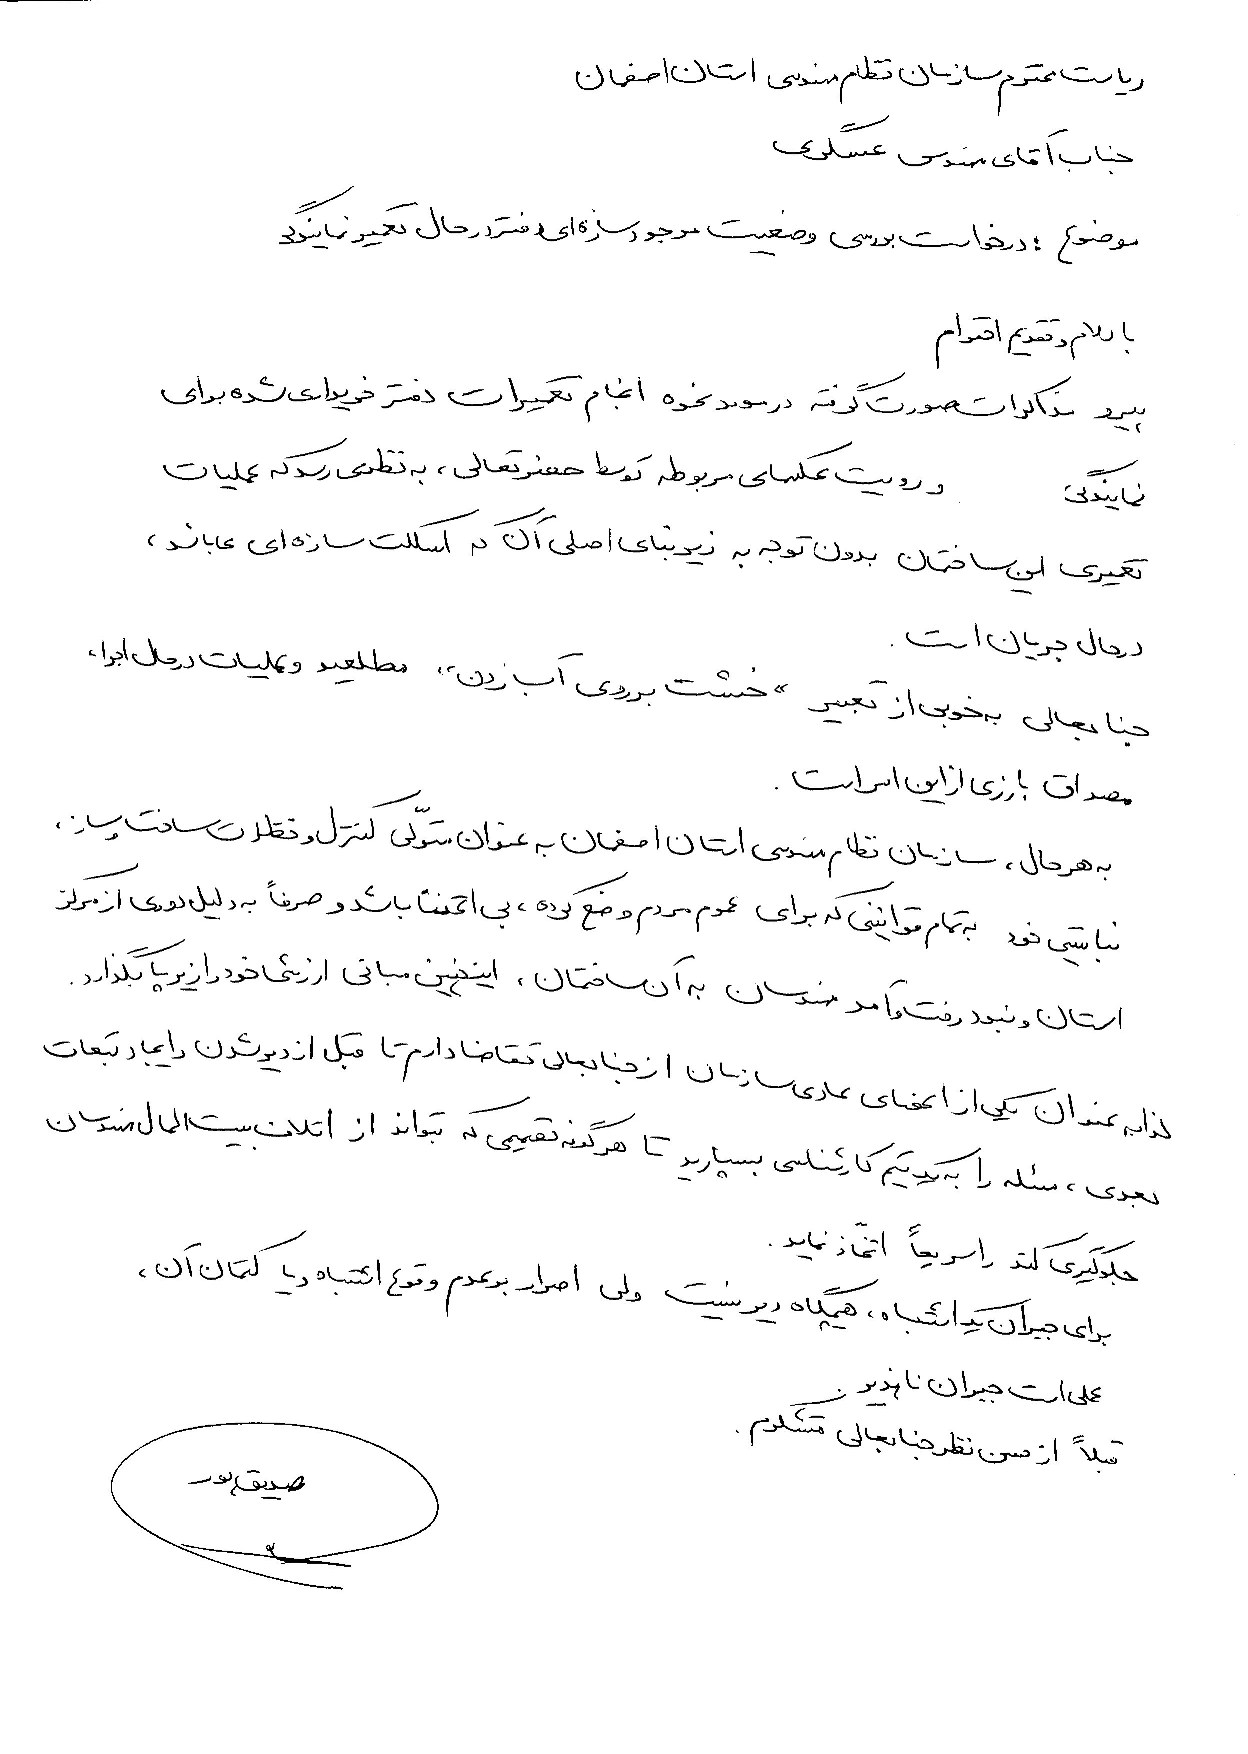 ریاست محترم سازمان نظام مهندسی استان اصفهان
جناب آقای مهندس عسگری
موضوع : درخواست بررسی وضعیت موجود سازه‌ای دفتر در حال تعمیر نمایندگی
با سلام و تقدیم احترام
پیرو مذاکرات صورت گرفته در مورد نحوه انجام تعمیرات دفتر خریداری شده برای
نمایندگی و رویت عکسهای مربوطه توسط حضرتعالی، به نظر می رسد که عملیات
تعمیری این ساختمان بدون توجه به زیربنای اصلی آن که اسکلت سازه ای می باشد،
در حال جریان است.
جنابعالی به خوبی از تعبیر "خشت بر روی آب زدن" مطلعید و عملیات در حال اجرا،
مصداق بارزی از این امر است.
به هر حال، سازمان نظام مهندسی استان اصفهان به عنوان متولّی کنترل و نظارت ساخت و ساز،
نبایستی خود به تمام قوانینی که برای عموم مردم وضع کرده، بی اعتنا باشد و صرفاً به دلیل دوری از مرکز
استان و نبود رفت و آمد مهندسان به آن ساختمان، اینچنین مبانی ارزشی خود را زیر پا بگذارد.
لذا به عنوان یکی از اعضای عادی سازمان از جنابعالی تقاضا دارم تا قبل از دیر شدن و ایجاد تبعات
بعدی، مسئله را به یک تیم کارشناسی بسپارید تا هرگونه تصمیمی که بتواند از اتلاف بیت المال مهندسان
جلوگیری کند را سریعاً اتّخاذ نماید.
برای جبران یک اشتباه، هیچگاه دیر نیست ولی اصرار بر عدم وقوع اشتباه و یا کتمان آن،
عملی است جبران ناپذیر.
قبلاً از حسن نظر جنابعالی متشکرم.
صدیق پور